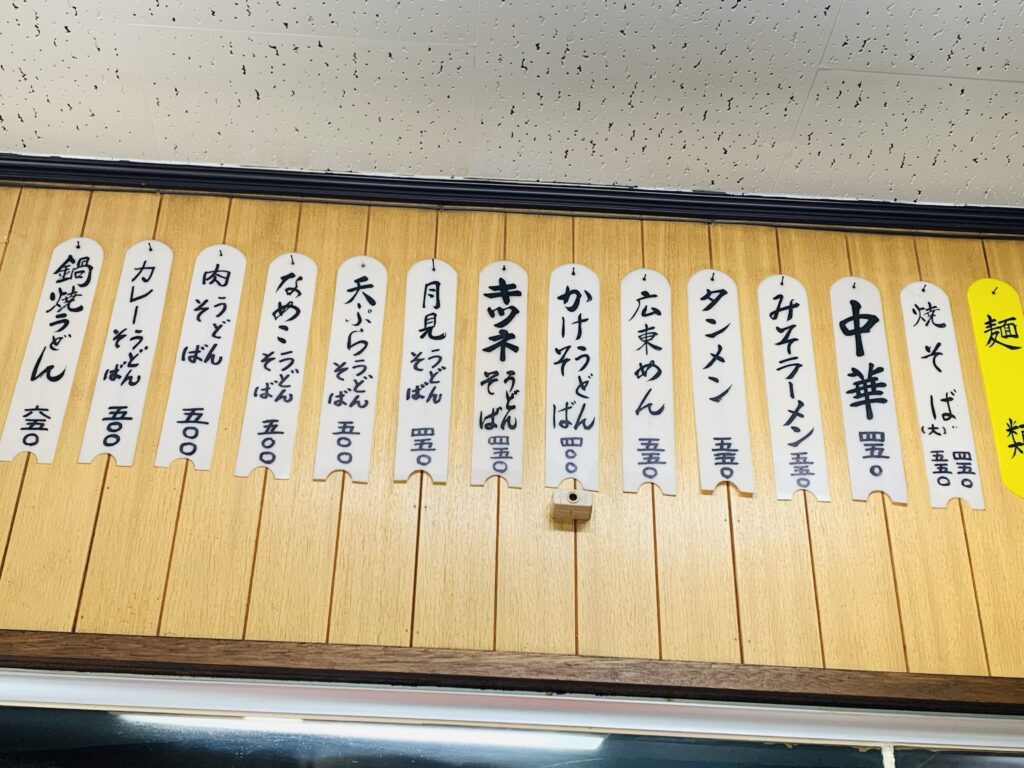 麺類
焼そば 四五〇
(大) 五五〇
中華 四五〇
みそラーメン 五五〇
タンメン 五五〇
広東めん 五五〇
かけうどんそば 四〇〇
キツネうどんそば 四五〇
月見うどんそば 四五〇
天ぷらうどんそば 五〇〇
なめこうどんそば 五〇〇
肉うどんそば 五〇〇
カレーうどんそば 五〇〇
鍋焼うどん 六五〇